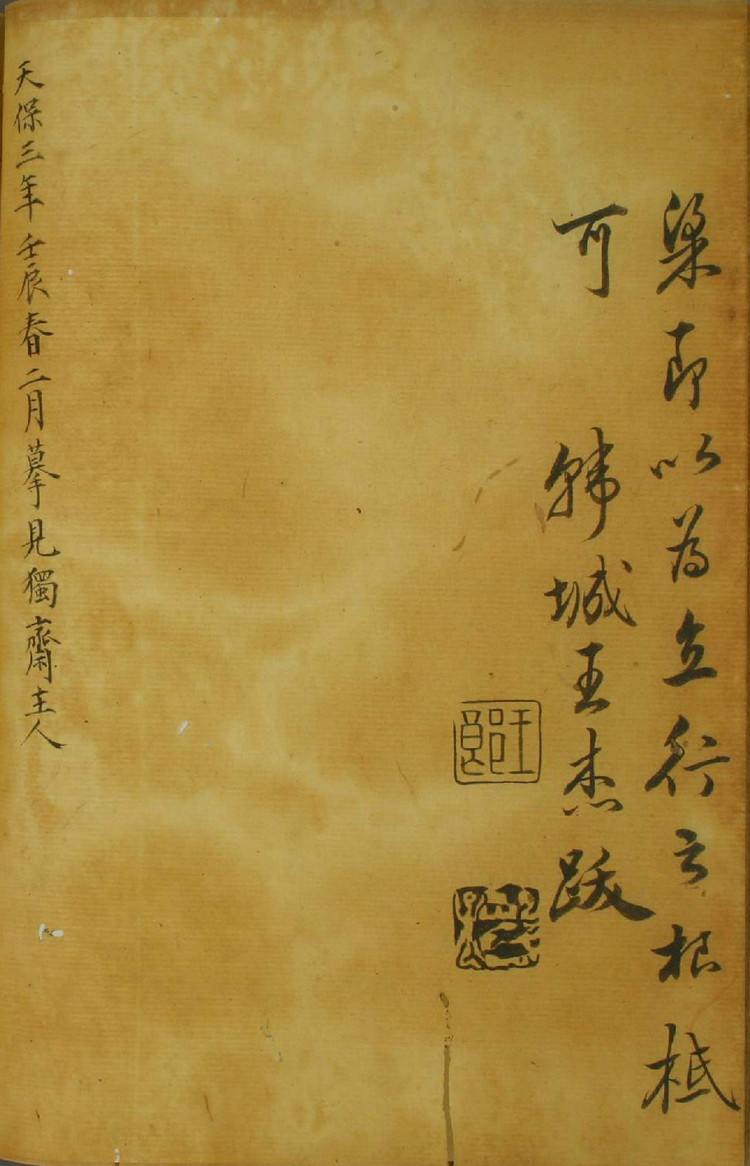 梁即以為立行之根柢
可 韓城王杰跋
天保三年壬辰春二月摹見獨齋主人